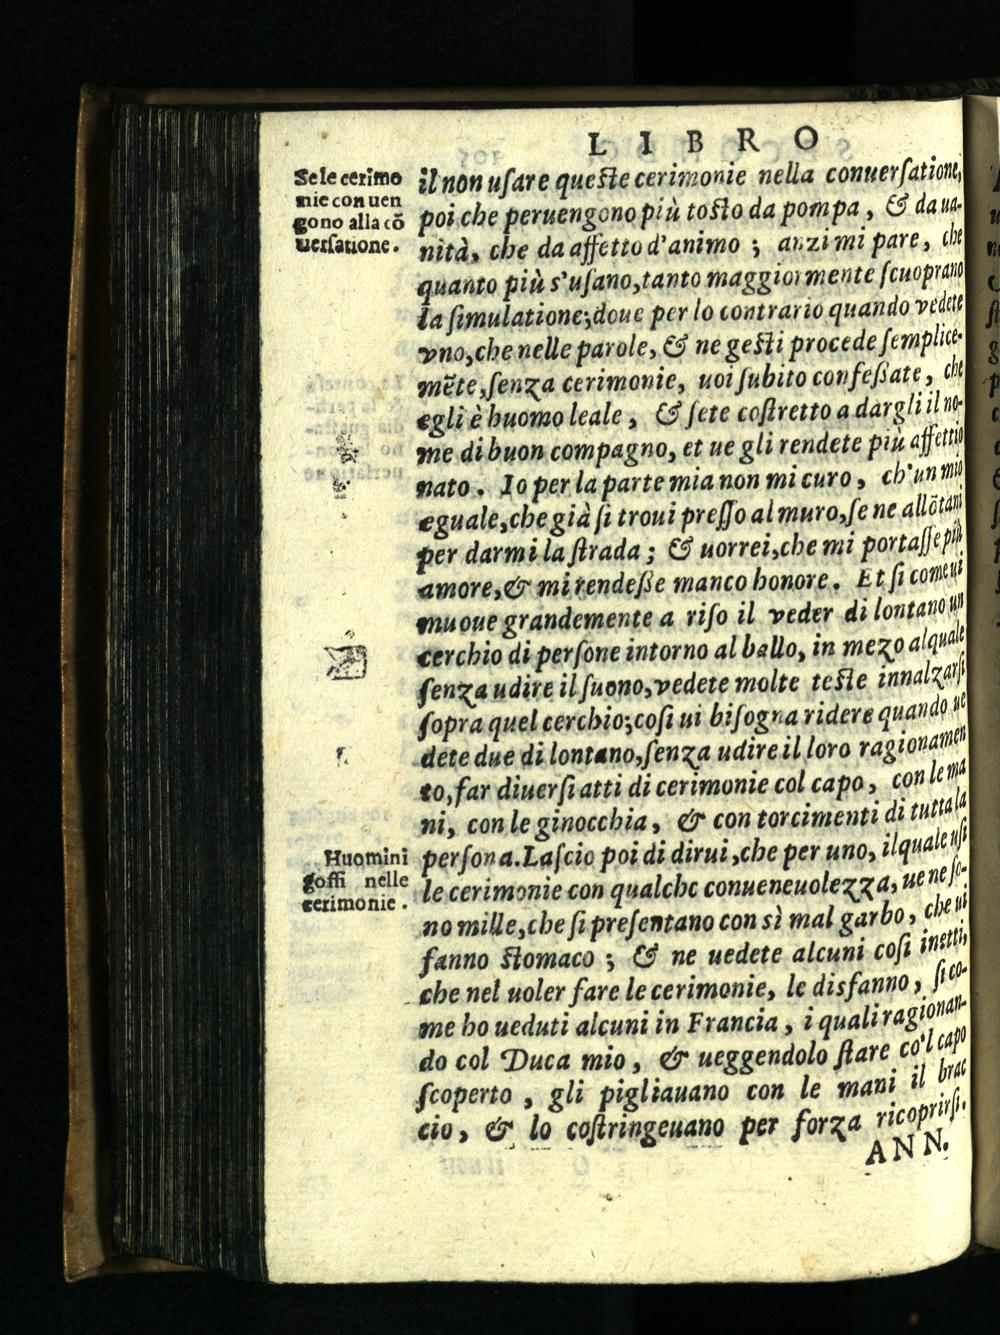 LIBRO
Se le cerimo
nie conuen
gono alla cõ
uersatione.
il non usare queste cerimonie nella conuersatione,
poi che peruengono più tosto da pompa, & da ua-
nità, che da affetto d'animo ; anzi mi pare, che
quanto più s'usano, tanto maggiormente scuoprano
la simulatione; doue per lo contrario quando vedete
vno, che nelle parole, & ne gesti procede semplice-
mẽte, senza cerimonie, uoi subito confessate, che
egli è huomo leale, & sete costretto a dargli il no-
me di buon compagno, et ue gli rendete più affettio
nato. Io per la parte mia non mi curo, ch'un mio
eguale, che già si troui presso al muro, se ne allõtani
per darmi la strada ; & uorrei, che mi portasse più
amore, & mi rendesse manco honore. Et si come ui
muoue grandemente a riso il veder di lontano un
cerchio di persone intorno al ballo, in mezo al quale
senza udire il suono, vedete molte teste innalzarsi
sopra quel cerchio; cosi ui bisogna ridere quando ue
dete due di lontano, senza udire il loro ragionamen
to, far diuersi atti di cerimonie col capo, con le ma
ni, con le ginocchia, & con torcimenti di tutta la
persona. Lascio poi di dirui, che per uno, il quale usi
le cerimonie con qualche conueneuolezza, ue ne so-
no mille, che si presentano con sì mal garbo, che ui
fanno stomaco ; & ne uedete alcuni cosi inetti,
che nel uoler fare le cerimonie, le disfanno, si co-
me ho ueduti alcuni in Francia, i quali ragionan-
do col Duca mio, & ueggendolo stare co'l capo
scoperto, gli pigliauano con le mani il brac
cio, & lo costringeuano per forza ricoprirsi.
Huomini
goffi nelle
cerimonie.
ANN.